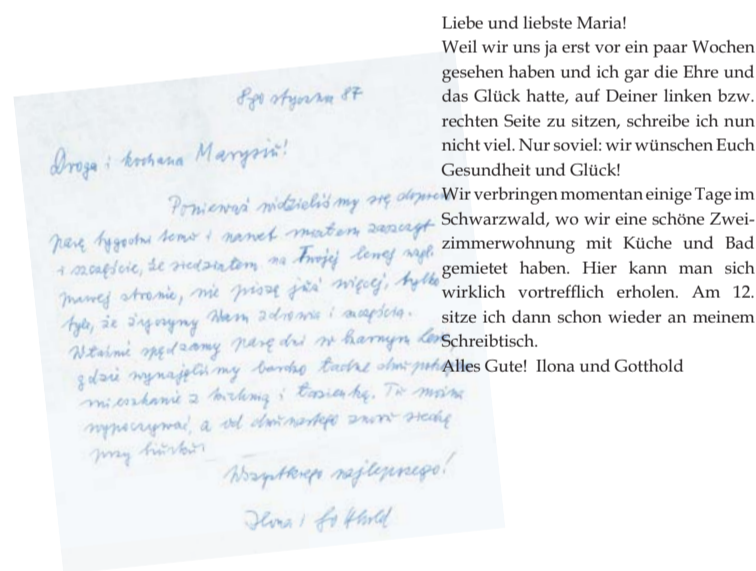 8go stycznia 87
Droga i kochana Marysiu!
Ponieważ widzieliśmy się dopiero
parę tygodni temu i nawet miałem zaszczyt
i szczęście, że siedziałem na Twojej lewej wzgl.
prawej stronie, nie piszę już więcej, tylko
tyle, że życzymy Wam zdrowia i szczęścia.
Właśnie spędzamy parę dni w
gdzie wynajęliśmy bardzo ładne
mieszkanie z kuchnią i łazienką. Tu można
wypoczywać, a od dwunastego znowu siedzę
przy biurku.
Wszystkiego najlepszego!
Ilona i Gotthold
Liebe und liebste Maria!
Weil wir uns ja erst vor ein paar Wochen
gesehen haben und ich gar die Ehre und
das Glück hatte, auf Deiner linken bzw.
rechten Seite zu sitzen, schreibe ich nun
nicht viel. Nur soviel: wir wünschen Euch
Gesundheit und Glück!
Wir verbringen momentan einige Tage im
Schwarzwald, wo wir eine schöne Zwei-
zimmerwohnung mit Küche und Bad
gemietet haben. Hier kann man sich
wirklich vortrefflich erholen. Am 12.
sitze ich dann schon wieder an meinem
Schreibtisch.
Alles Gute! Ilona und Gotthold